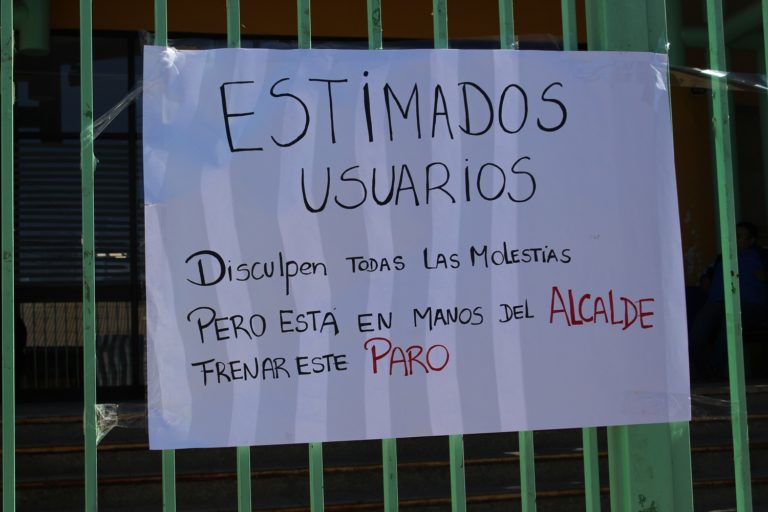 ESTIMADOS
USUARIOS
DISCULPEN TODAS LAS MOLESTIAS
PERO ESTÁ EN MANOS DEL ALCALDE
FRENAR ESTE PARO